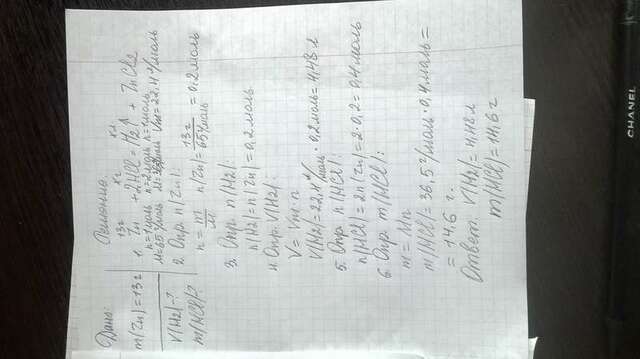 Дано:
m(Zn)=13г
V(H2)-?
m(HCl)-?
Решение.
13г x2 x2
1. Zn + 2HCl = H2↑ + ZnCl2
n=1моль n=2моль n=1моль
M=65г/моль Vm=22,4л/моль
2. Опр. n(Zn):
n = m/M n(Zn) = 13г/65г/моль = 0,2моль
3. Опр. n(H2):
n(H2)=n(Zn)=0,2моль
4. Опр. V(H2):
V = Vm · n
V(H2)=22,4л/моль · 0,2моль=4,48л
5. Опр n(HCl):
n(HCl)=2n(Zn)=2·0,2=0,4моль
6. Опр m(HCl):
m = Mn
m(HCl)=36,5г/моль·0,4моль=
=14,6 г.
Ответ: V(H2)=4,48л
m(HCl)=14,6г
CHANEL